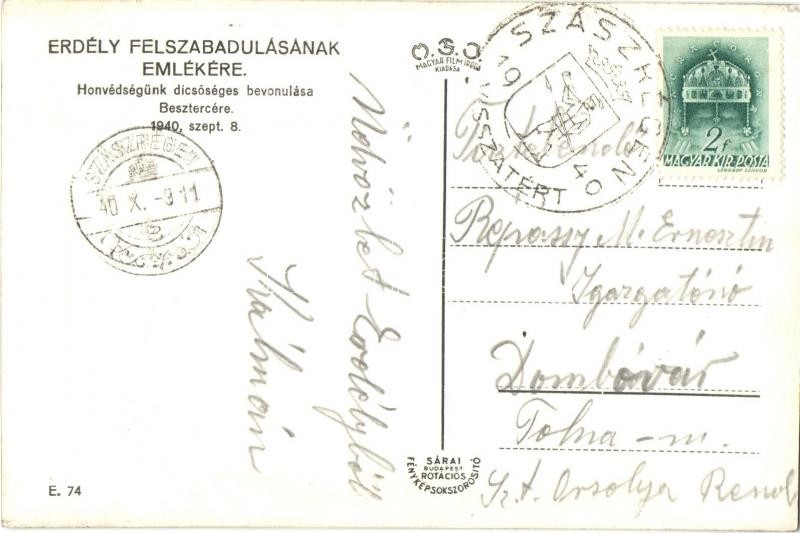 ERDÉLY FELSZABADULÁSÁNAK
EMLÉKÉRE.
Honvédségünk dicsőséges bevonulása
Besztercére.
1940, szept. 8.
SZÁSZRÉGEN
40 X. -9 11
Üdvözlet Erdélyből
Kálmán
E. 74
MAGYAR FILM IRODA
KIADÁSA
SÁRAI
BUDAPEST
ROTACIÓS
FÉNYKÉPSOKSZOROSÍTÓ
SZÁSZRÉGEN
VISSZATÉRT
1940
2f
MAGYAR KIR. POSTA
LÉGRÁDY SÁNDOR
Tisztelendő
Repassy M. Ernesztin
Igazgatónő
Dombóvár
Tolna-m.
Szt. Orsolya Rend